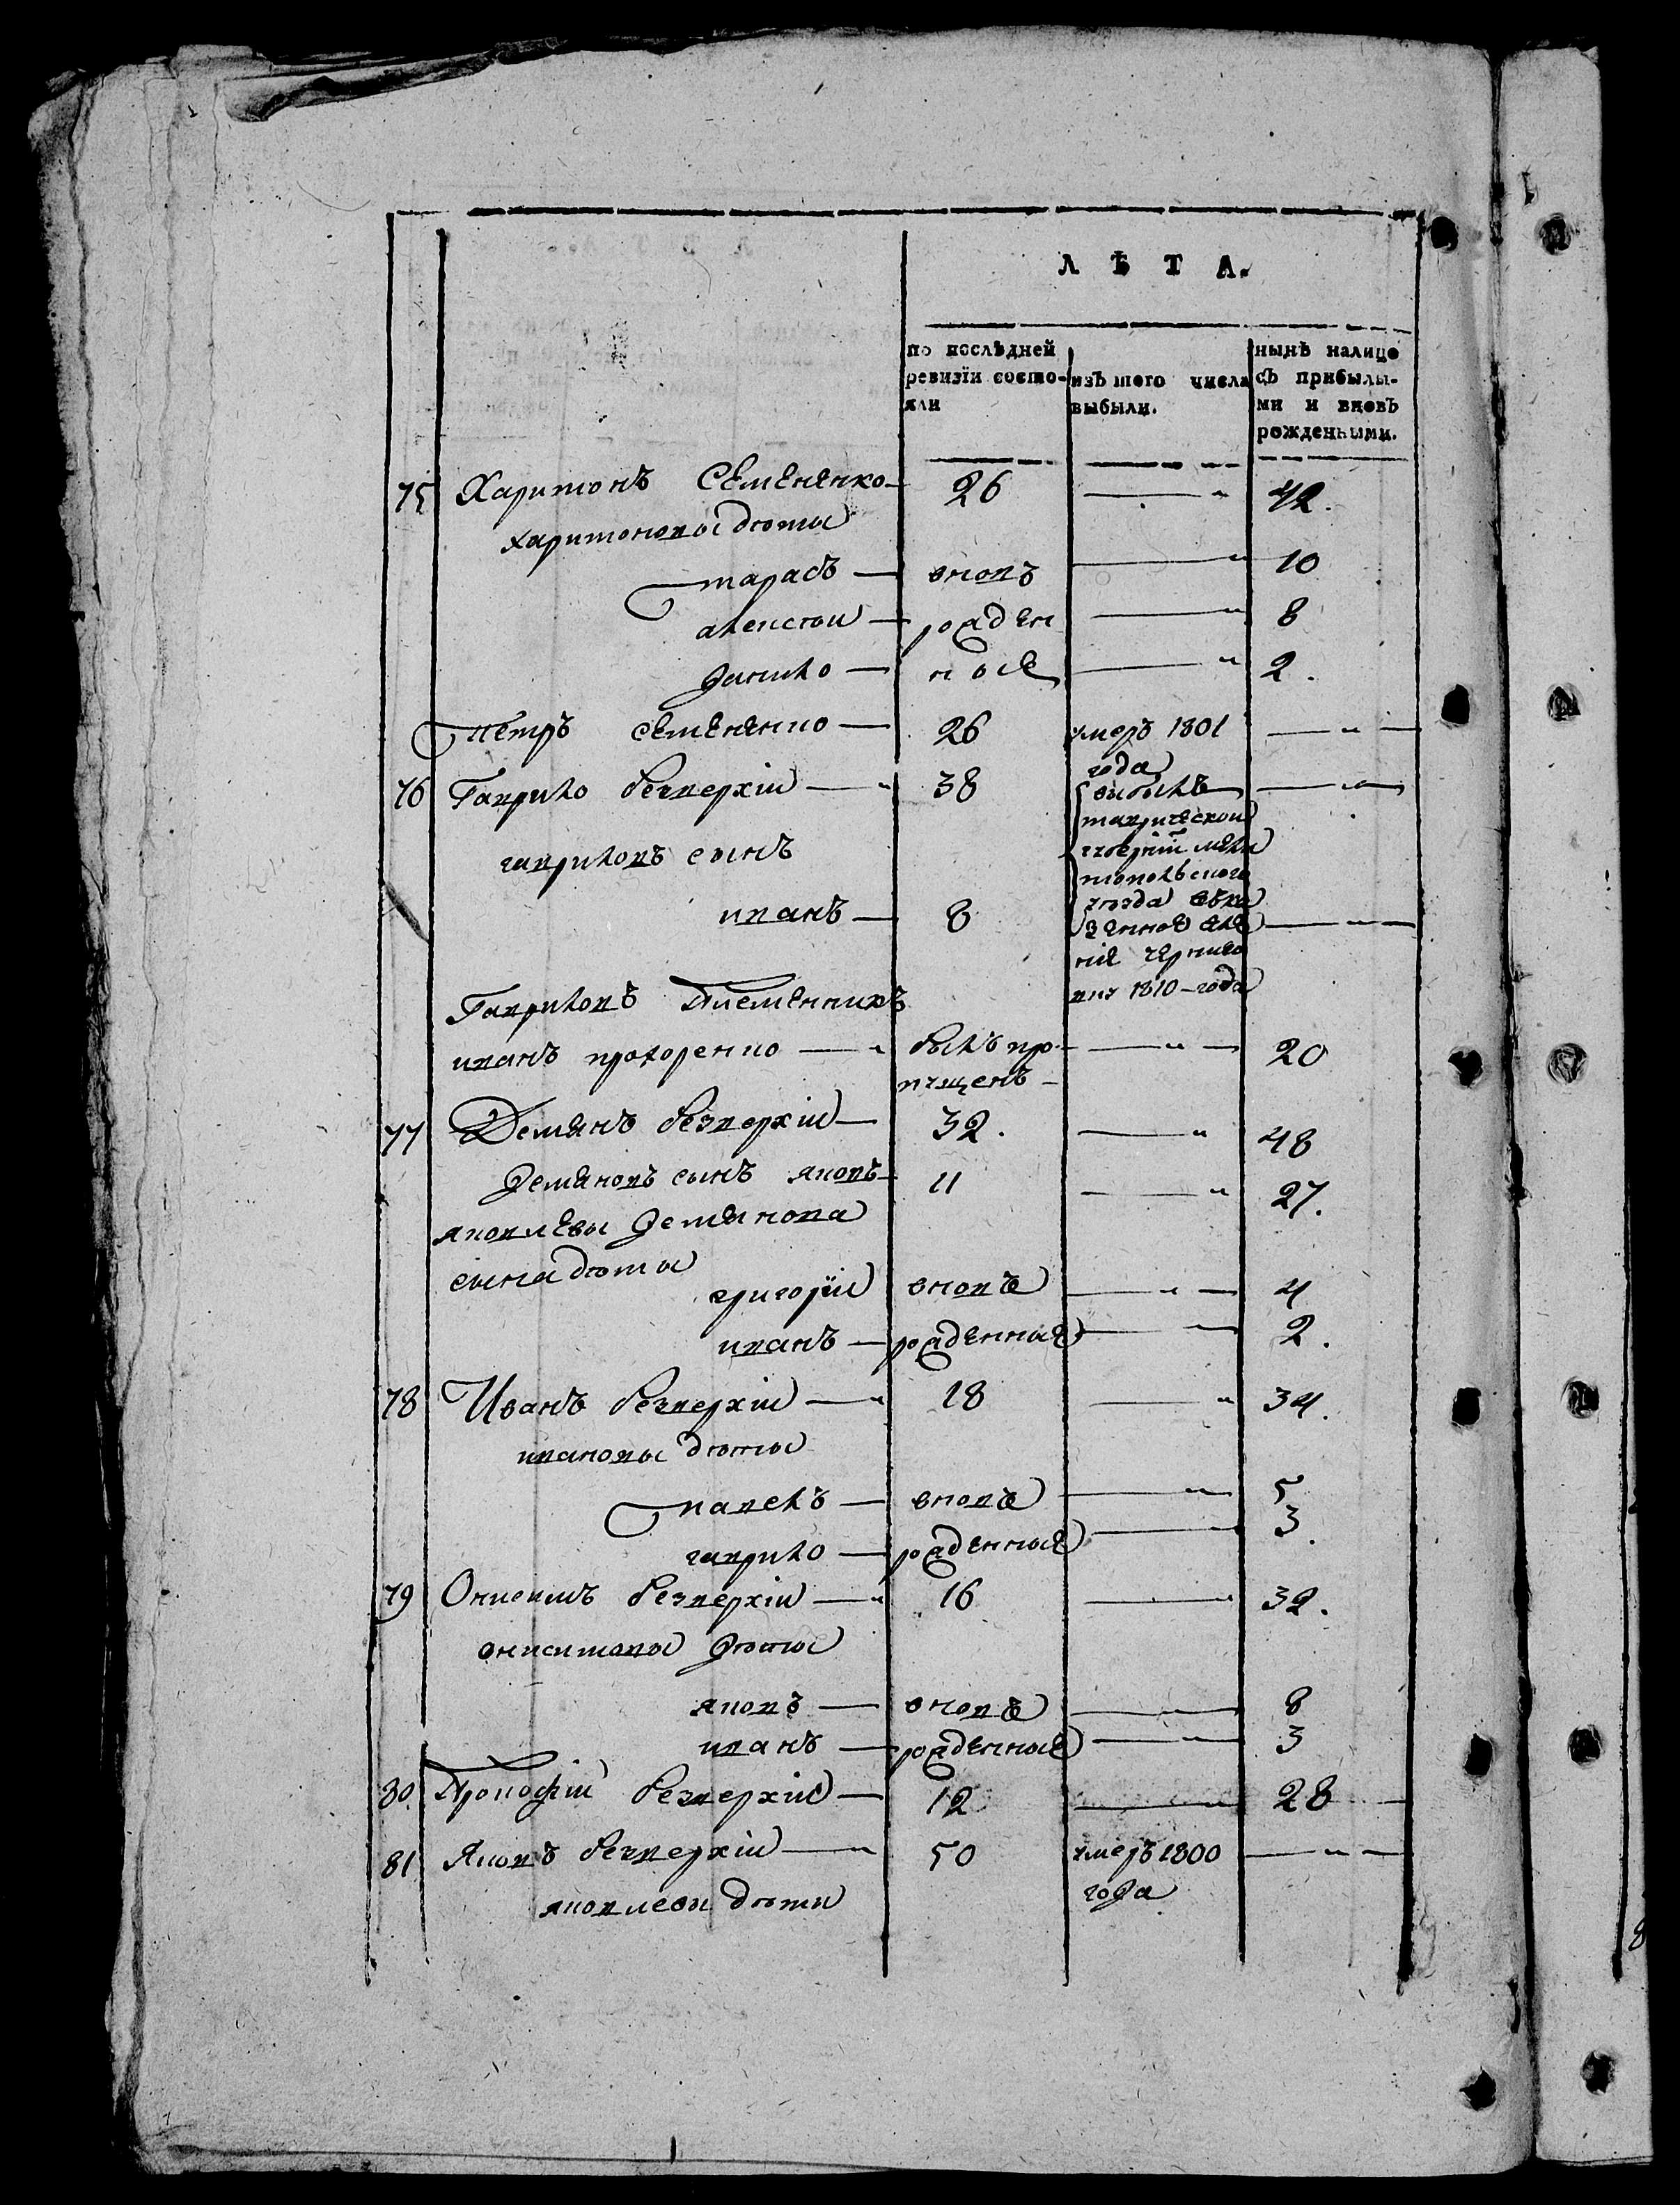 ЛѢТА.
по послѣдней ревизіи состояли
изъ того числа выбыли.
нынѣ налицо съ прибылыми и вновь рожденными.
75 Харитонъ Семененко — 26 — 42.
харитоновы дѣти
тарасъ — вновъ — 10
алексѣи — рожден — 8
данило — ные — 2.
петръ семененко — 26 умеръ 1801 года —
76 Гаврило безверхіи — 38 выбылъ —
таврической
губерніи мели
топольского
гавриловъ сынъ
уѣзда въка
иванъ — 8 зенное селе —
ние чернига
Гавриловъ Племенникъ
1810 года
иванъ прохоренко — былъ пропущенъ — 20
77 Демянъ безверхіи — 32. — 48
демяновъ сынъ яковъ — 11 — 27.
яковлевы демянова
сына дѣти
григоріи вновъ — 4
иванъ — рожденные — 2.
78 Иванъ безверхіи — 18 — 34.
ивановы дѣти
павелъ — вновъ — 5
гаврило — рожденные — 3.
79 Онисимъ безверхіи — 16 — 32.
онисимовы дѣти
яковъ — вновъ — 8
иванъ — рожденные — 3
80. Прокофіи безверхіи — 12 — 28
81 Яковъ безверхіи — 50 умеръ 1800 года —
яковлевы дѣти